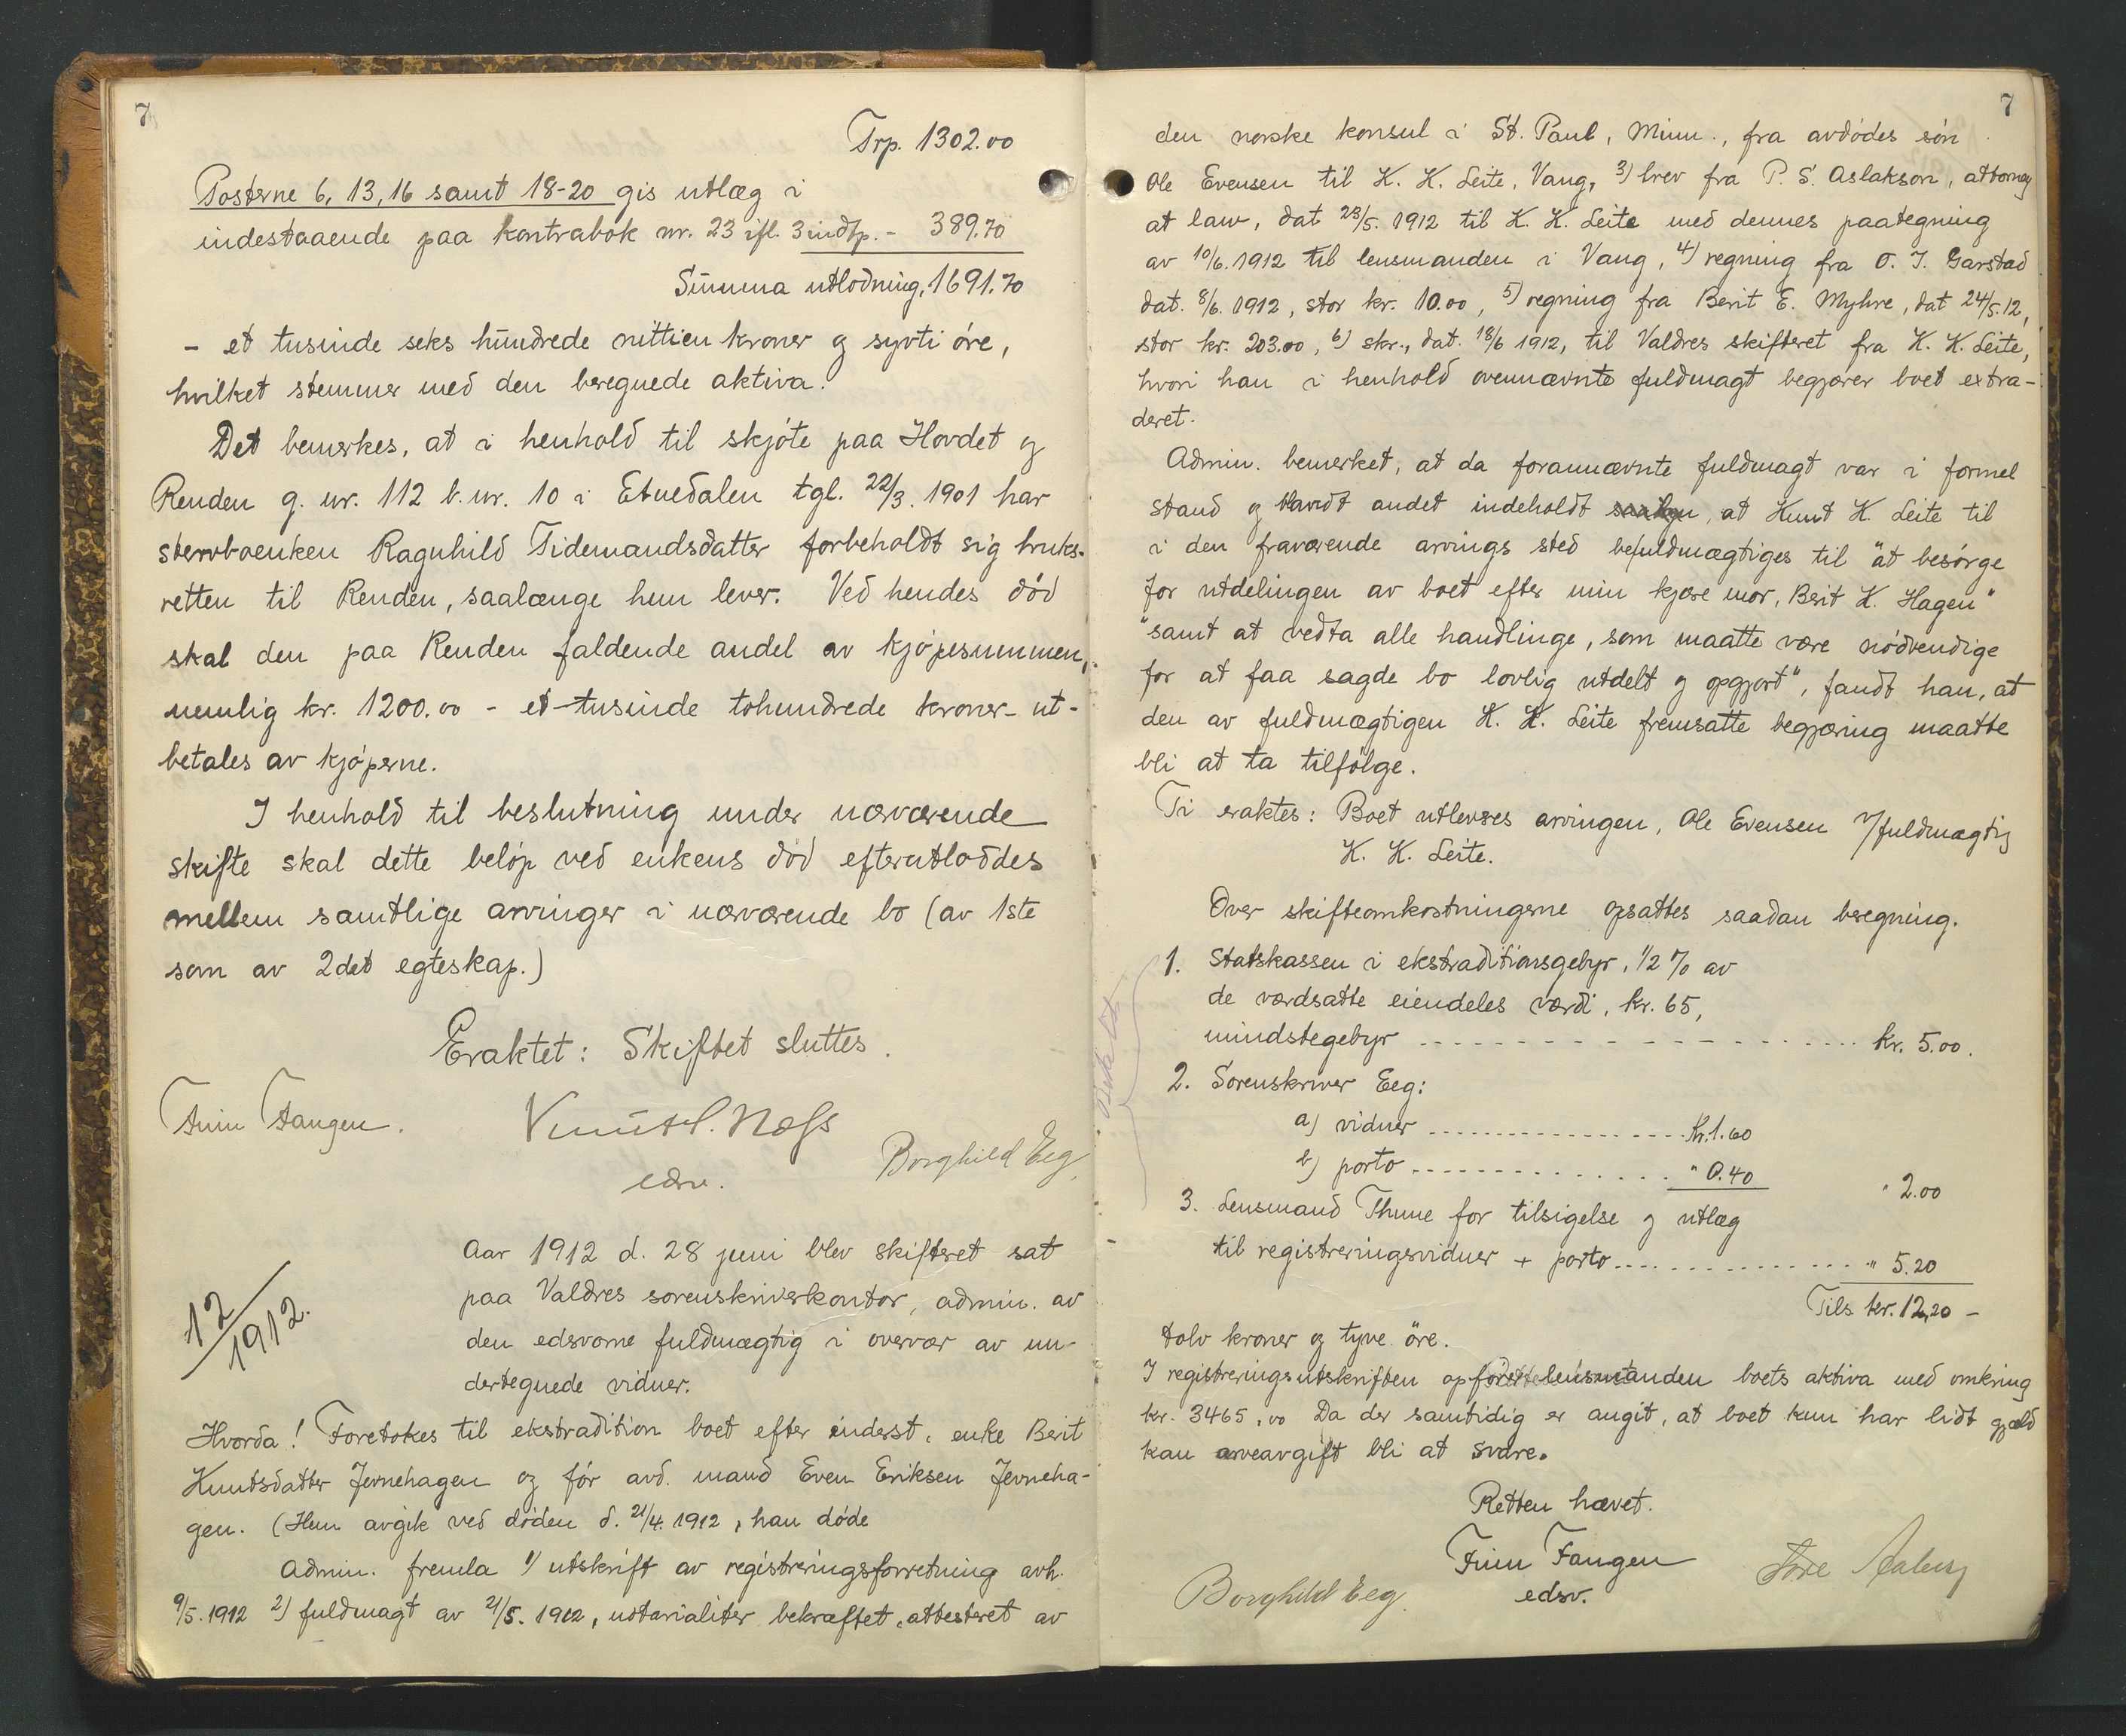 7
Trp. 1302.00
Posterne 6, 13, 16 samt 18-20 gis utlæg i
indestaaende paa kontrabok nr. 23 ifl. 3 indtp. - 389.70
Summa utlodning, 1691.70
- et tusinde seks hundrede nittien kroner og sytti øre,
hvilket stemmer med den beregnede aktiva.
Det bemerkes, at i henhold til skjøte paa Hovdet og
Renden g. nr. 112 b. nr. 10 i Etnedalen tgl. 22/3. 1901 har
stervboenken Ragnhild Tidemandsdatter forbeholdt sig bruks-
retten til Renden, saalænge hun lever. Ved hendes død
skal den paa Renden faldende andel av kjøpesummen,
nemlig kr. 1200.00 - et tusinde tohundrede kroner - ut-
betales av kjøperne.
I henhold til beslutning under nærværende
skifte skal dette beløp ved enkens død efterutloddes
mellem samtlige arvinger i nærværende bo (av 1ste
som av 2det egteskap.)
Eraktet: Skiftet sluttes.
Finn Fangen.
Knut L. Næss
edsv.
Borghild Eeg
12/1912.
Aar 1912 d. 28 juni blev skifteret sat
paa Valdres sorenskriverkontor, admin. av
den edsvorne fuldmægtig i overvær av un-
dertegnede vidner.
Hvorda! Foretokes til ekstradition boet efter inderst, enke Berit
Knutsdatter Jernehagen og før avd. mand Even Eriksen Jerneha-
gen. (Hun avgik ved døden d. 21/4. 1912, han døde
Admin. fremla 1) utskrift av registreringsforretning avh.
9/5. 1912 2) fuldmagt av 21/5. 1912, notarialiter bekræftet, attesteret av
7
den norske konsul i St. Paul, Minn., fra avdødes søn
Ole Evensen til K. K. Leite, Vang, 3) brev fra P. S. Aslakson, attorney
at law, dat 23/5. 1912 til K. K. Leite med dennes paategning
av 10/6. 1912 til lensmanden i Vang, 4) regning fra O. J. Garstad
dat. 8/6. 1912, stor kr. 10.00, 5) regning fra Berit E. Myhre, dat 24/5. 12,
stor kr. 203.00, 6) skr., dat. 18/6 1912, til Valdres skifteret fra K. K. Leite,
hvori han i henhold ovennævnte fuldmagt begjærer boet extra-
deret.
Admin. bemerket, at da forannævnte fuldmagt var i formel
stand og blandt andet indeholdt, at Knut K. Leite til
i den fraværende arvings sted befuldmægtiges til "at besørge
for utdelingen av boet efter min kjære mor, Berit K. Hagen"
"samt at vedta alle handlinge, som maatte være nødvendige
for at faa sagde bo lovlig utdelt og opgjort", fandt han, at
den av fuldmægtigen K. K. Leite fremsatte begjæring maatte
bli at ta tilfølge.
Ti eraktes: Boet utleveres arvingen, Ole Evensen v/fuldmægtig
K. K. Leite.
Over skifteomkostningerne opsattes saadan beregning.
1. Statskassen i ekstraditionsgebyr, 1/2 % av
de værdsatte eiendeles værdi, kr. 65,
mindstegebyr kr. 5.00.
2. Sorenskriver Eeg:
a) vidner kr. 1.60
b) porto " 0.40
" 2.00
3. Lensmand Thune for tilsigelse og utlæg
til registreringsvidner + porto " 5.20
Tils kr. 12,20 -
tolv kroner og tyve øre.
I registreringsutskriften opfører lensmanden boets aktiva med omkring
kr. 3465,00 Da der samtidig er angit, at boet kun har lidt gjæld
kan arveavgift bli at svare.
Retten hævet.
Finn Fangen
edsv.
Borghild Eeg.
Tore Aaberg